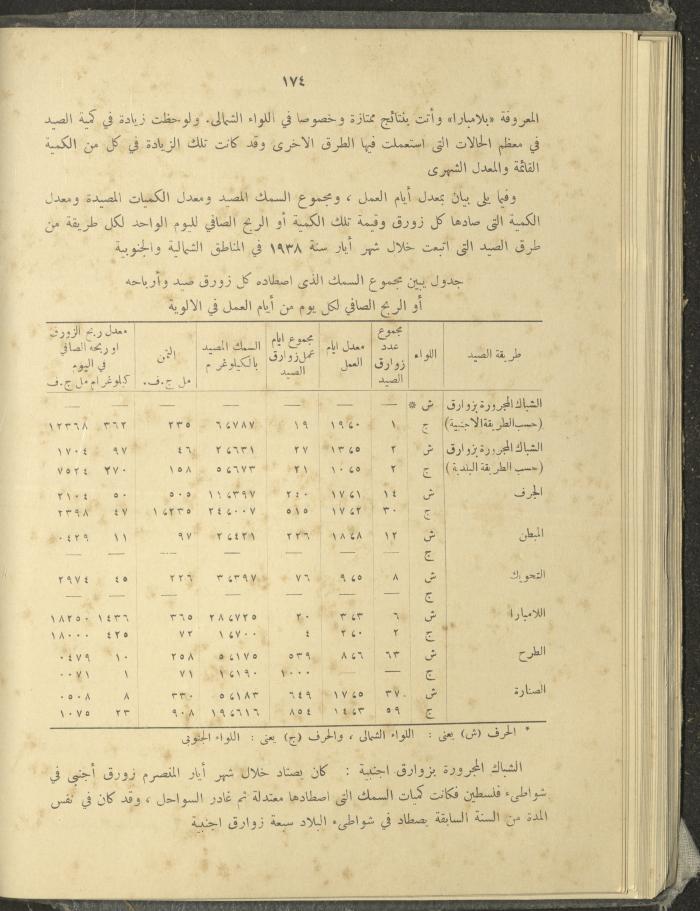 ١٧٤
المعروفة «بلامبارا» وأتت بنتائج ممتازة وخصوصا في اللواء الشمالى. ولوحظت زيادة في كمية الصيد
في معظم الحالات التى استعملت فيها الطرق الاخرى وقد كانت تلك الزيادة في كل من الكمية
القائمة والمعدل الشهرى
وفيما يلى بيان بمعدل أيام العمل ، ومجموع السمك المصيد ومعدل الكميات المصيدة ومعدل
الكمية التى صادها كل زورق وقيمة تلك الكمية أو الربح الصافي لليوم الواحد لكل طريقة من
طرق الصيد التى اتبعت خلال شهر أيار سنة ١٩٣٨ في المناطق الشمالية والجنوبية
جدول يبين مجموع السمك الذى اصطاده كل زورق صيد وأرباحه
أو الربح الصافي لكل يوم من أيام العمل في الالوية
طريقة الصيد | اللواء | مجموع عدد زوارق الصيد | معدل ايام العمل | مجموع ايام عمل زوارق الصيد | السمك المصيد بالكيلوغرام | الثمن مل ج.ف. | معدل ربح الزورق او ربحه الصافي في اليوم كيلوغرام مل ج.ف
الشباك المجرورة بزوارق ش * — — — — — — —
(حسب الطريقة الاجنبية) ج ١ ١٩،٠ ١٩ ٦،٧٨٧ ٢٣٥ ٣٦٢ ١٢٣٦٨
الشباك المجرورة بزوارق ش ٢ ١٣،٥ ٢٧ ٢،٦٣١ ٤٦ ٩٧ ١٧٠٤
(حسب الطريقة البلدية) ج ٢ ١٠،٥ ٢١ ٥،٦٧٣ ١٥٨ ٢٧٠ ٧٥٢٤
الجرف ش ١٤ ١٧،١ ٢٤٠ ١١،٣٩٧ ٥٠٥ ٥٠ ٢١٠٤
ج ٣٠ ١٧،٢ ٥١٥ ٢٤،٠٠٧ ١،٢٣٥ ٤٧ ٢٣٩٨
المبطن ش ١٢ ١٨،٨ ٢٢٦ ٢،٤٢١ ٩٧ ١١ ٠٤٢٩
ج — — — — — — —
التحويك ش ٨ ٩،٥ ٧٦ ٣،٣٩٧ ٢٢٦ ٤٥ ٢٩٧٤
ج — — — — — — —
اللامبارا ش ٦ ٣،٣ ٢٠ ٢٨،٧٢٥ ٣٦٥ ١٤٣٦ ١٨٢٥٠
ج ٢ ٢،٠ ٤ ١،٧٠٠ ٧٢ ٤٢٥ ١٨٠٠٠
الطرح ش ٦٣ ٨،٦ ٥٣٩ ٥،١٧٥ ٢٥٨ ١٠ ٠٤٧٩
ج — — ١٠٠٠ ١،١٩٠ ٧١ ١ ٠٠٧١
الصنارة ش ٣٧ ١٧،٥ ٦٤٩ ٥،١٨٣ ٣٣٠ ٨ ٠٥٠٨
ج ٥٩ ١٤،٣ ٨٥٤ ١٩،٦١٦ ٩٠٨ ٢٣ ١٠٧٥
* الحرف (ش) يعنى : اللواء الشمالى ، والحرف (ج) يعنى : اللواء الجنوبى
الشباك المجرورة بزوارق اجنبية : كان يصتاد خلال شهر أيار المنصرم زورق أجنبى في
شواطىء فلسطين فكانت كميات السمك التى اصطادها معتدلة ثم غادر السواحل ، وقد كان في نفس
المدة من السنة السابقة يصطاد في شواطىء البلاد سبعة زوارق اجنبية